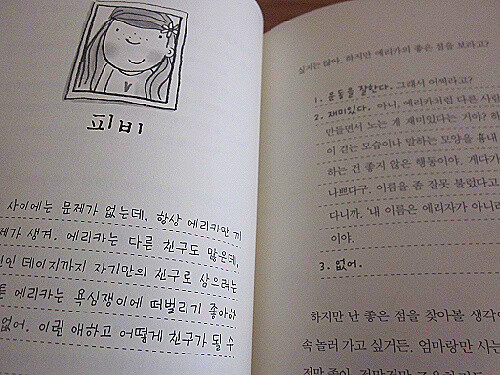 피비
사이에는 문제가 없는데, 항상 에리카만 끼
제가 생겨. 에리카는 다른 친구도 많은데,
인 데이지까지 자기만의 친구로 삼으려는
에리카는 욕심쟁이에 떠벌리기 좋아하
없어. 이런 애하고 어떻게 친구가 될 수
싶지는 않아. 하지만 에리카의 좋은 점을 보라고?
1. 운동을 잘한다. 그래서 어쩌라고?
2. 재미있다. 아니, 에리카처럼 다른 사람
만들면서 노는 게 재미있다는 거야? 하
이 걷는 모습이나 말하는 모양을 흉내
하는 건 좋지 않은 행동이야. 게다가
나쁘다구. 이름을 좀 잘못 불렀다고
다니까. '내 이름은 에리자가 아니라
이야.
3. 없어.
하지만 난 좋은 점을 찾아볼 생각이
속 놀러 가고 싶거든. 엄마랑만 사는